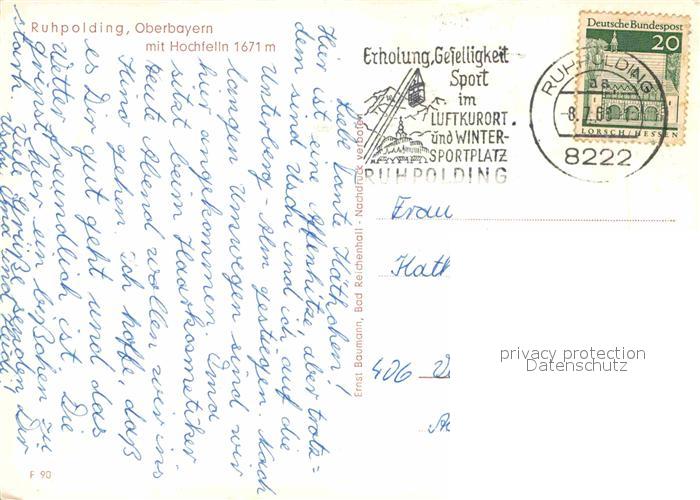 Ruhpolding, Oberbayern
mit Hochfelln 1671 m
Liebe Tante Käthchen!
Hier ist eine Affenhitze, aber trotz=
dem sind Uschi und ich auf die
Unterberg-Alm gestiegen. Nach
langen Umwegen sind wir
hier angekommen. Oma
sitzt beim Haarkosmetiker
Heute Abend wollen wir ins
Kino gehen. Ich hoffe, daß
es Dir gut geht und das
Wetter freundlich ist. Die
grinst hier ein bißchen zu
stark. Viele Grüße senden Dir
Uschi, Oma und Heidi
F 90
Ernst Baumann, Bad Reichenhall - Nachdruck verboten
Erholung, Geselligkeit
Sport
im
LUFTKURORT
und WINTER-
SPORTPLATZ
RUHPOLDING
RUHPOLDING
aa
8222
Deutsche Bundespost
20
LORSCH/HESSEN
Frau
Kath
406
privacy protection
Datenschutz